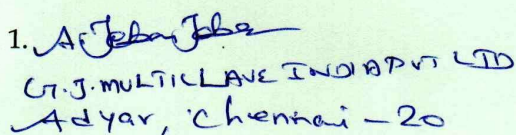 1. A. Jeba Jeba
G.J. MULTICLAVE INDIA PVT LTD
Adyar, Chennai - 20